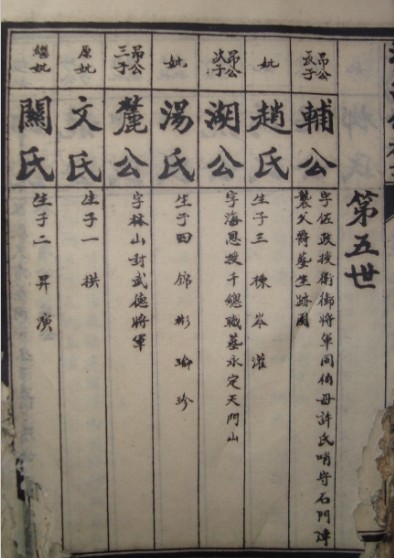 第五世
昂公長子
輔公
字佐政授衛御將軍同伯母許氏哨守石門津
襲父爵墓生跡周
妣
趙氏
生子三 棟 岑 灌
昂公次子
湖公
字海恩授千總職墓永定天門山
妣
湯氏
生子四 錦 彬 瑜 珍
昂公三子
麓公
字林山封武德將軍
原妣
文氏
生子一 拱
繼妣
關氏
生子二 昇 演